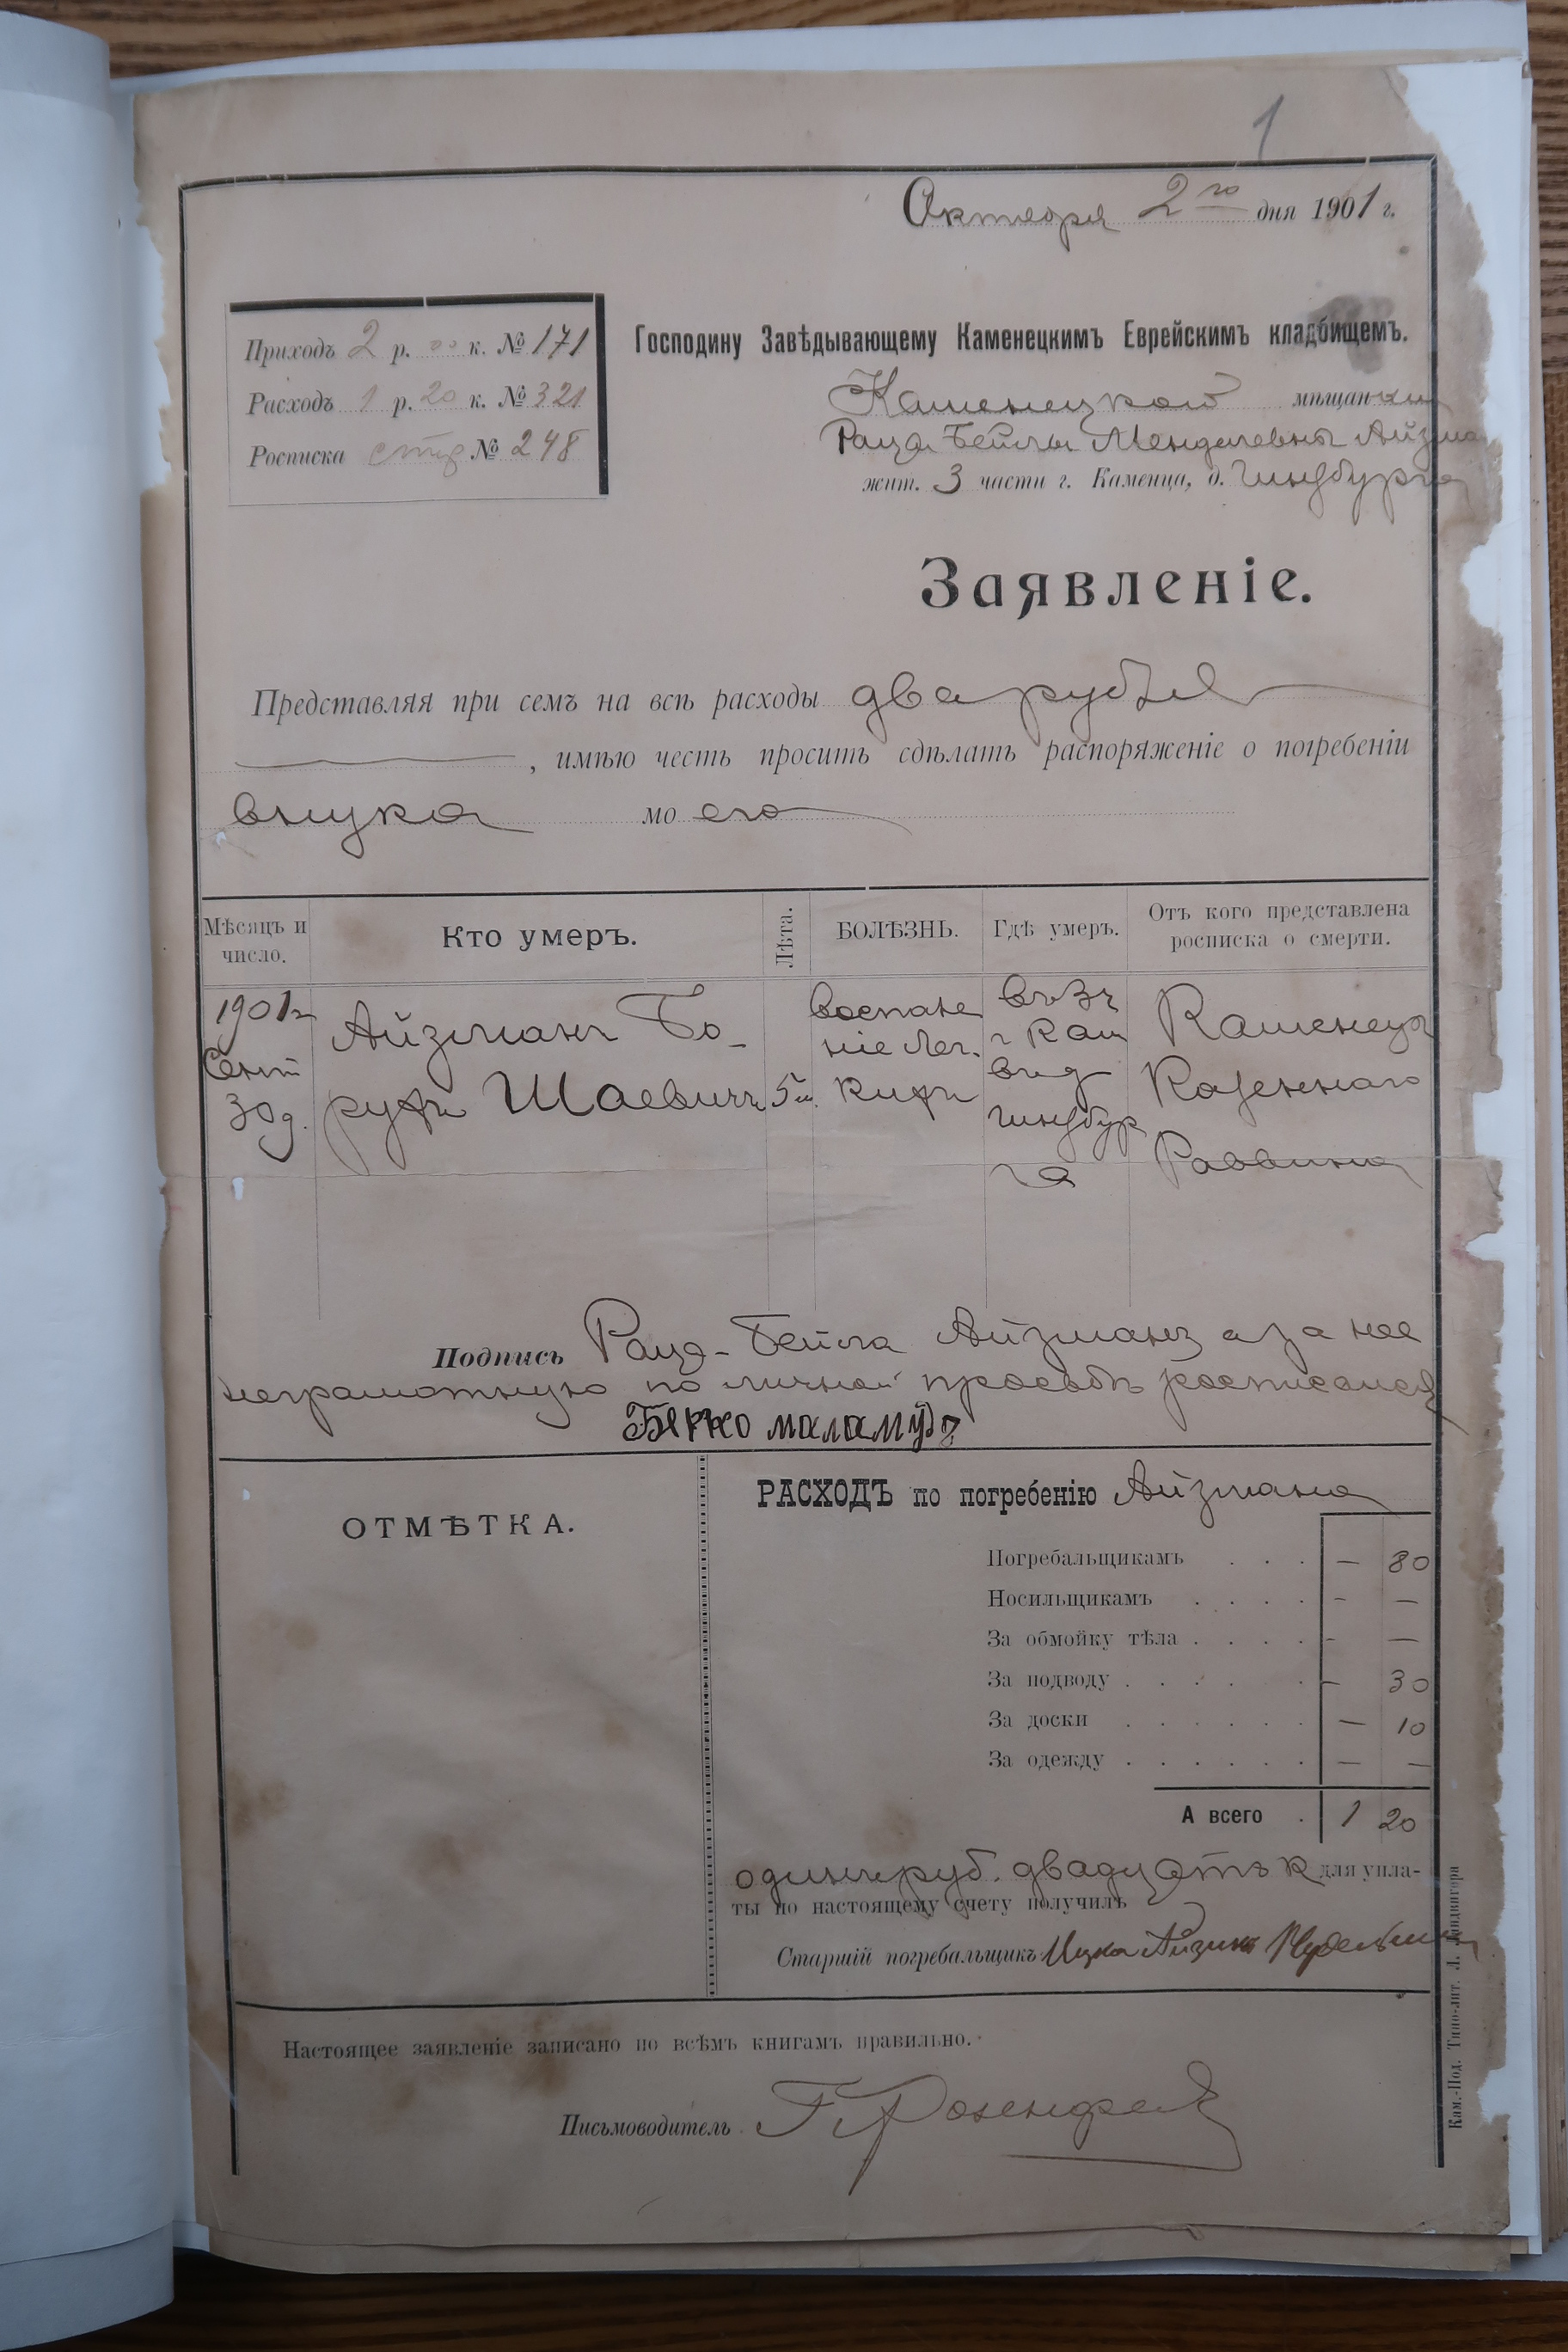 1
Октября 2го дня 1901 г.
Приходъ 2 р. 00 к. № 171
Расходъ 1 р. 20 к. № 321
Росписка № 248
Господину Завѣдывающему Каменецкимъ Еврейскимъ кладбищемъ.
Каменецкой мѣщанки
Раца Бейлы Менделевны Айзма
жит. 3 части г. Каменца, д. Гинзбурга
Заявленіе.
Представляя при семъ на всѣ расходы два рубля
, имѣю честь просить сдѣлать распоряженіе о погребеніи
внука моего
Мѣсяцъ и число.
Кто умеръ.
Лѣта.
БОЛѢЗНЬ.
Гдѣ умеръ.
Отъ кого представлена росписка о смерти.
1901 г.
Сент
30 д.
Айзманъ Бо-
рухъ Шаевичъ
5 м.
Воспале
ніе Лег.
кихъ
въ 3 ч
г Кам
в д
Гинзбур
га
Каменец
Казеннаго
Раввина
Подпись Раца-Бейла Айзманъ а за нее
неграмотную по личной просьбѣ росписался
маламудъ
РАСХОДЪ по погребенію Айзмана
ОТМѢТКА.
Погребальщикамъ . . . — 80
Носильщикамъ . . . . - —
За обмойку тѣла . . . . - —
За подводу . . . . . - 30
За доски . . . . . . — 10
За одежду . . . . . . — —
А всего . 1 20
одинъ руб. двадцать к для упла-
ты по настоящему счету получилъ
Старшій погребальщикъ Ицко Айзикъ
Настоящее заявленіе записано по всѣмъ книгамъ правильно.
Письмоводитель Г Розенфельд
Кам.-Под. Типо-лит. Л. Ландвигера